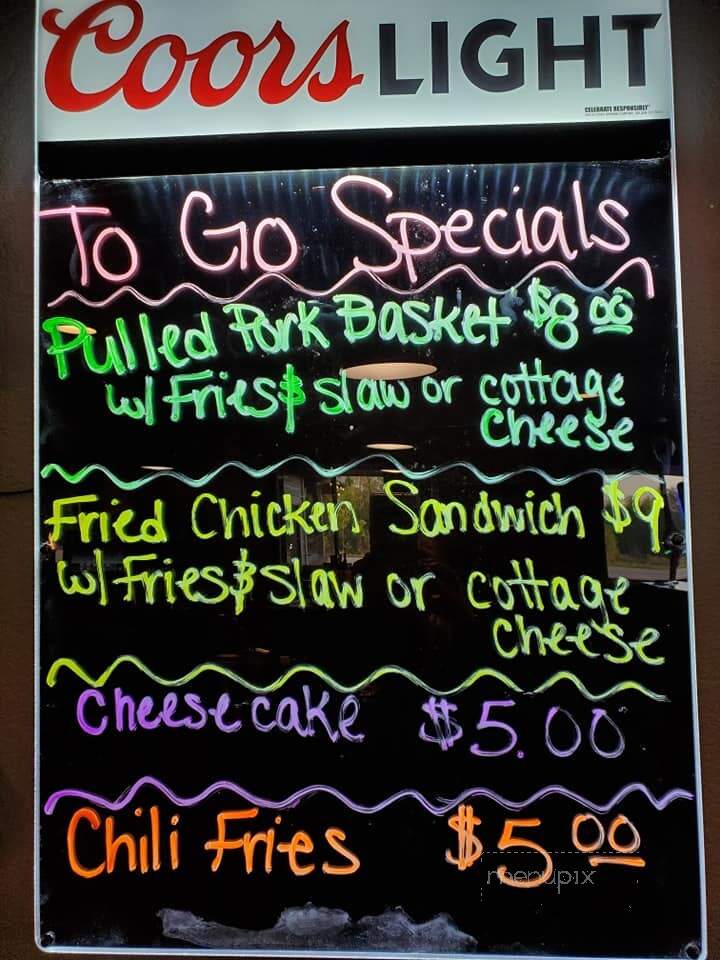 Coors LIGHT
CELEBRATE RESPONSIBLY®
To Go Specials
Pulled Pork Basket $8.00
w/ Fries & slaw or cottage
cheese
Fried Chicken Sandwich $9
w/ Fries & Slaw or cottage
cheese
Cheesecake $5.00
Chili Fries $5.00
menupix